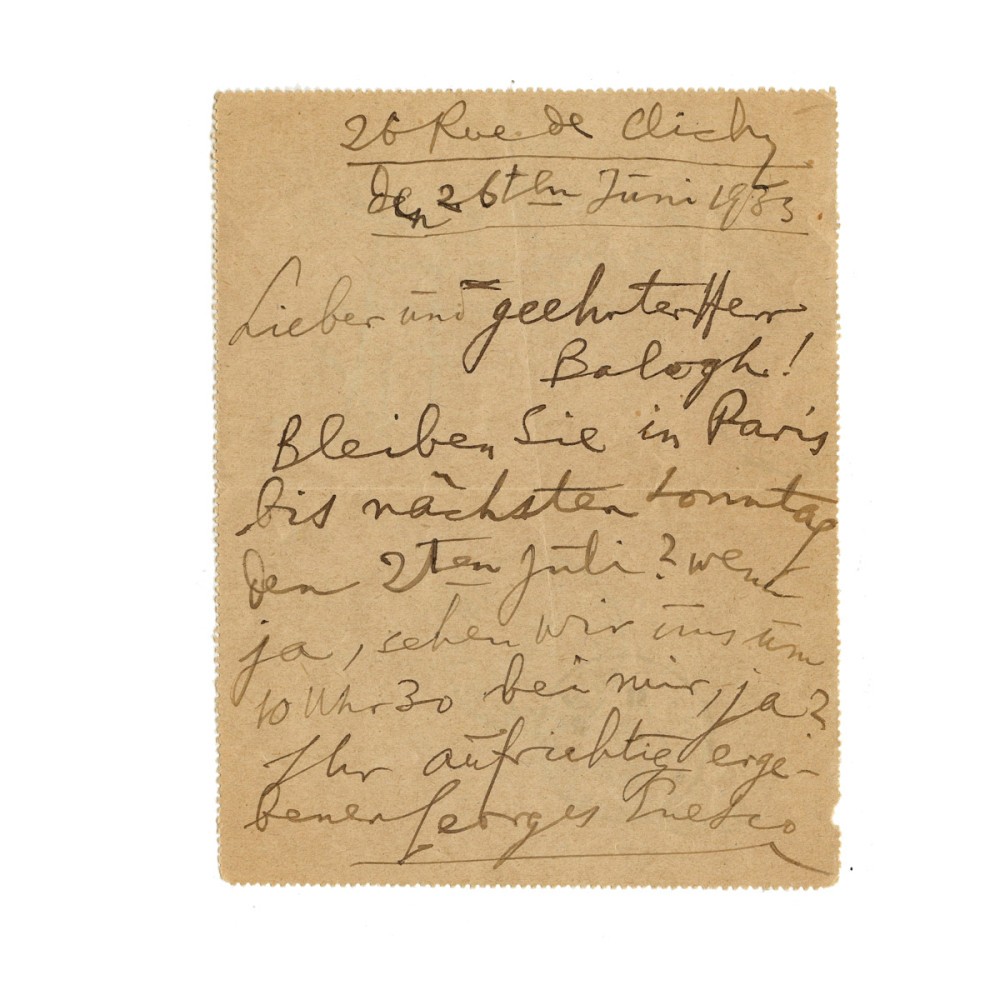 26 Rue de Clichy
den 26ten Juni 1933
Lieber und geehrter Herr
Balogh!
Bleiben Sie in Paris
bis nächsten Sonntag
den 2ten Juli? wenn
ja, sehen wir uns um
10 Uhr 30 bei mir, ja?
Ihr aufrichtig erge-
bener Georges Enesco